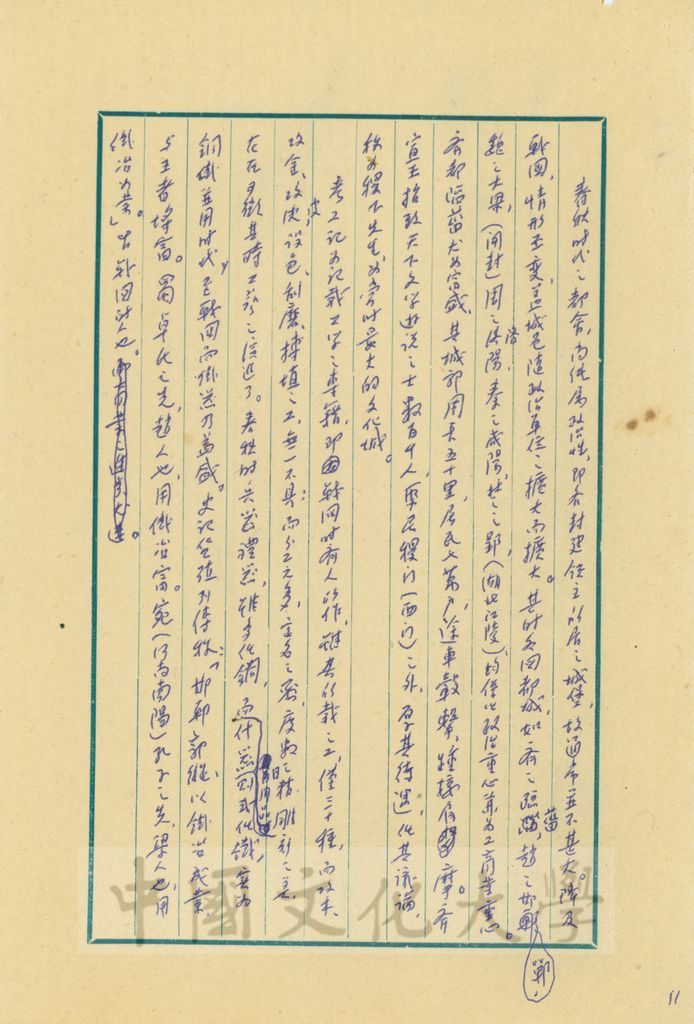 春秋時代之都會，尚純屬政治性，即各封建領主所居之城堡，故通常並不甚大。降及
戰國，情形丕變，蓋城邑隨政治單位之擴大而擴大。其時各國都城，如齊之臨菑，趙之邯鄲，
魏之大梁，(開封)周之洛陽，秦之咸陽，楚之郢，(湖北江陵)均僅以政治重心兼為工商業重心。
齊都臨菑尤為富盛，其城郭周長五十里，居民七萬戶，途車轂擊，踵接肩摩。齊
宣王招致天下文學游說之士數百千人，聚居稷門(西門)之外，厚其待遇，任其議論，
於是稷下先生為當時最大的文化城。
考工記為記載工學之專籍，即戰國時齊人所作，雖其所載之工，僅三十種，而攻木、
攻金、攻皮、設色、刮磨、摶埴之工，無一不具；而分工之多，定名之密，度數之精，雕刻之美，
在在可徵其時工藝之演進了。春秋時兵器禮器，雖多化銅，而什器則或化鐵，實為
銅鐵並用時代，至戰國而鐵器乃益盛。史記貨殖列傳稱：「邯鄲郭縱，以鐵冶成業，
與王者埒富。蜀卓氏之先，趙人也，用鐵冶富。宛(河南南陽)孔氏之先，梁人也，用
鐵冶為業。」皆戰國時人也。
11
中國文化大學